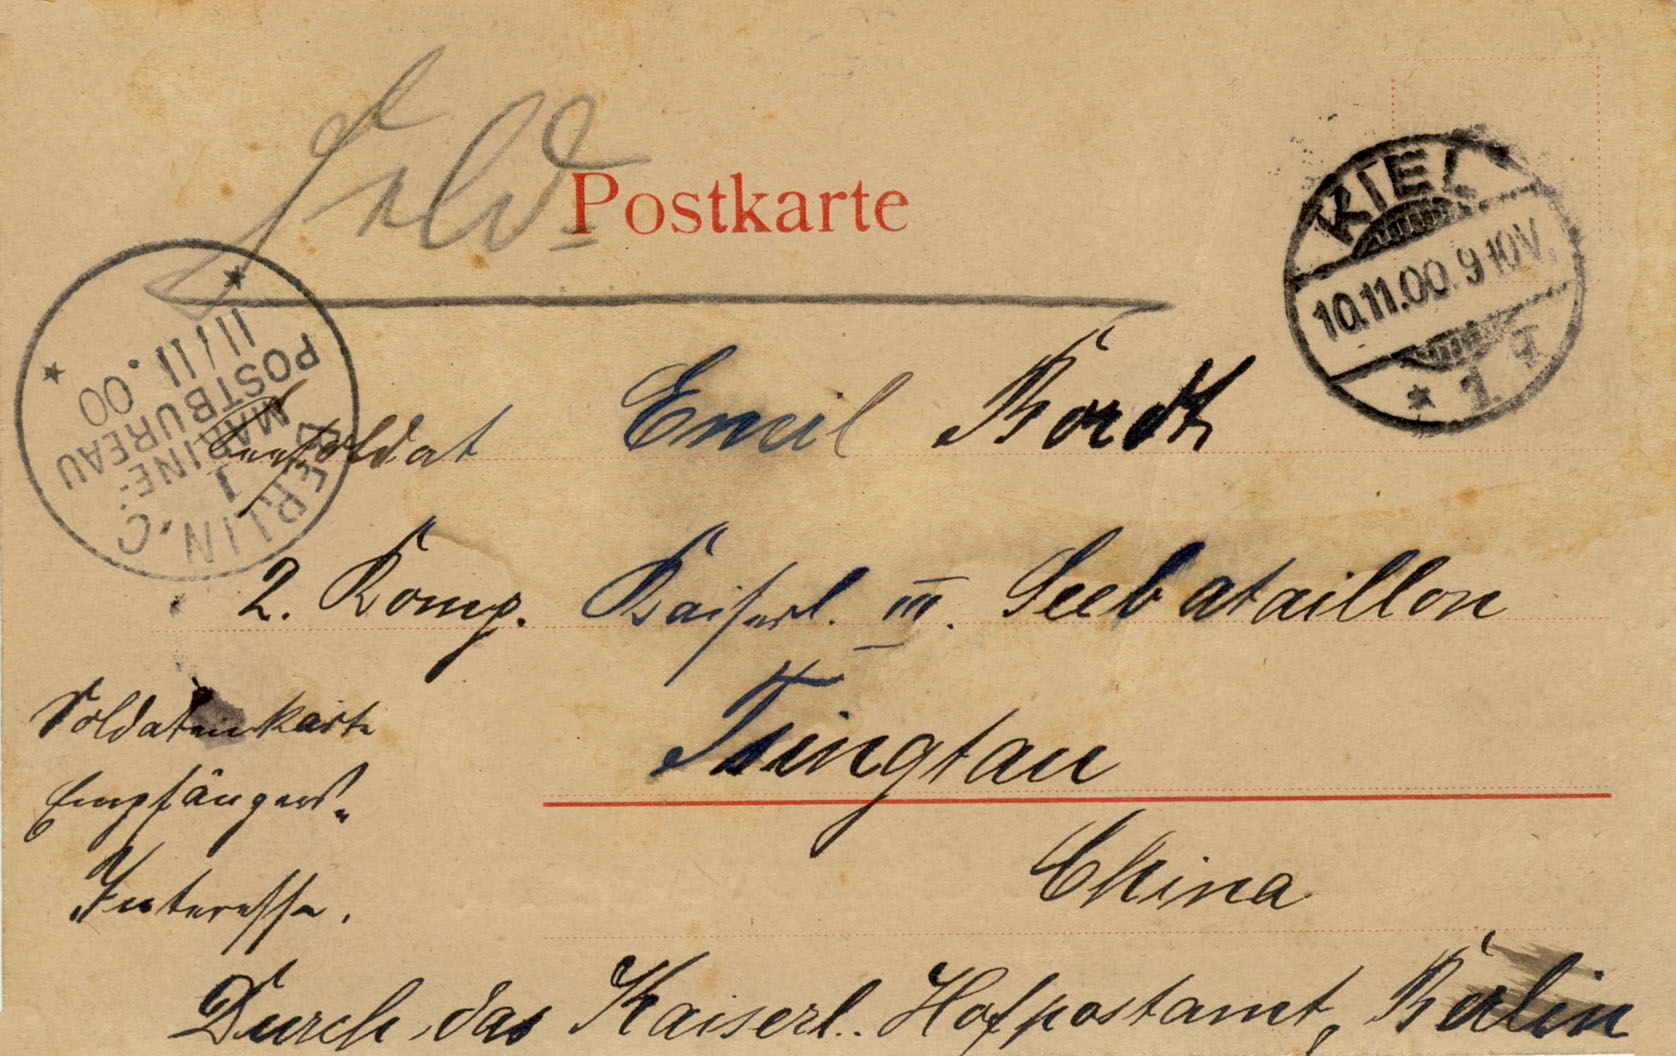 Feld
Postkarte
KIEL
10.11.00.9-10V.
* 1 g
BERLIN, C.
1
MARINE-
POSTBUREAU
11/11.00
Seesoldat Emil Bordt
2. Komp. Kaiserl. III. Seebataillon
Soldatenkarte
Empfängers.
Interesse.
Tsingtau
China
Durch das Kaiserl. Hofpostamt, Berlin